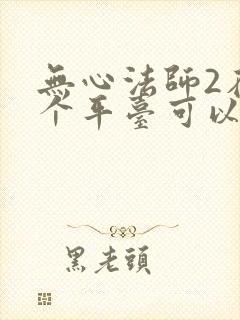 無心法師2在
个平臺可以
黑老頭